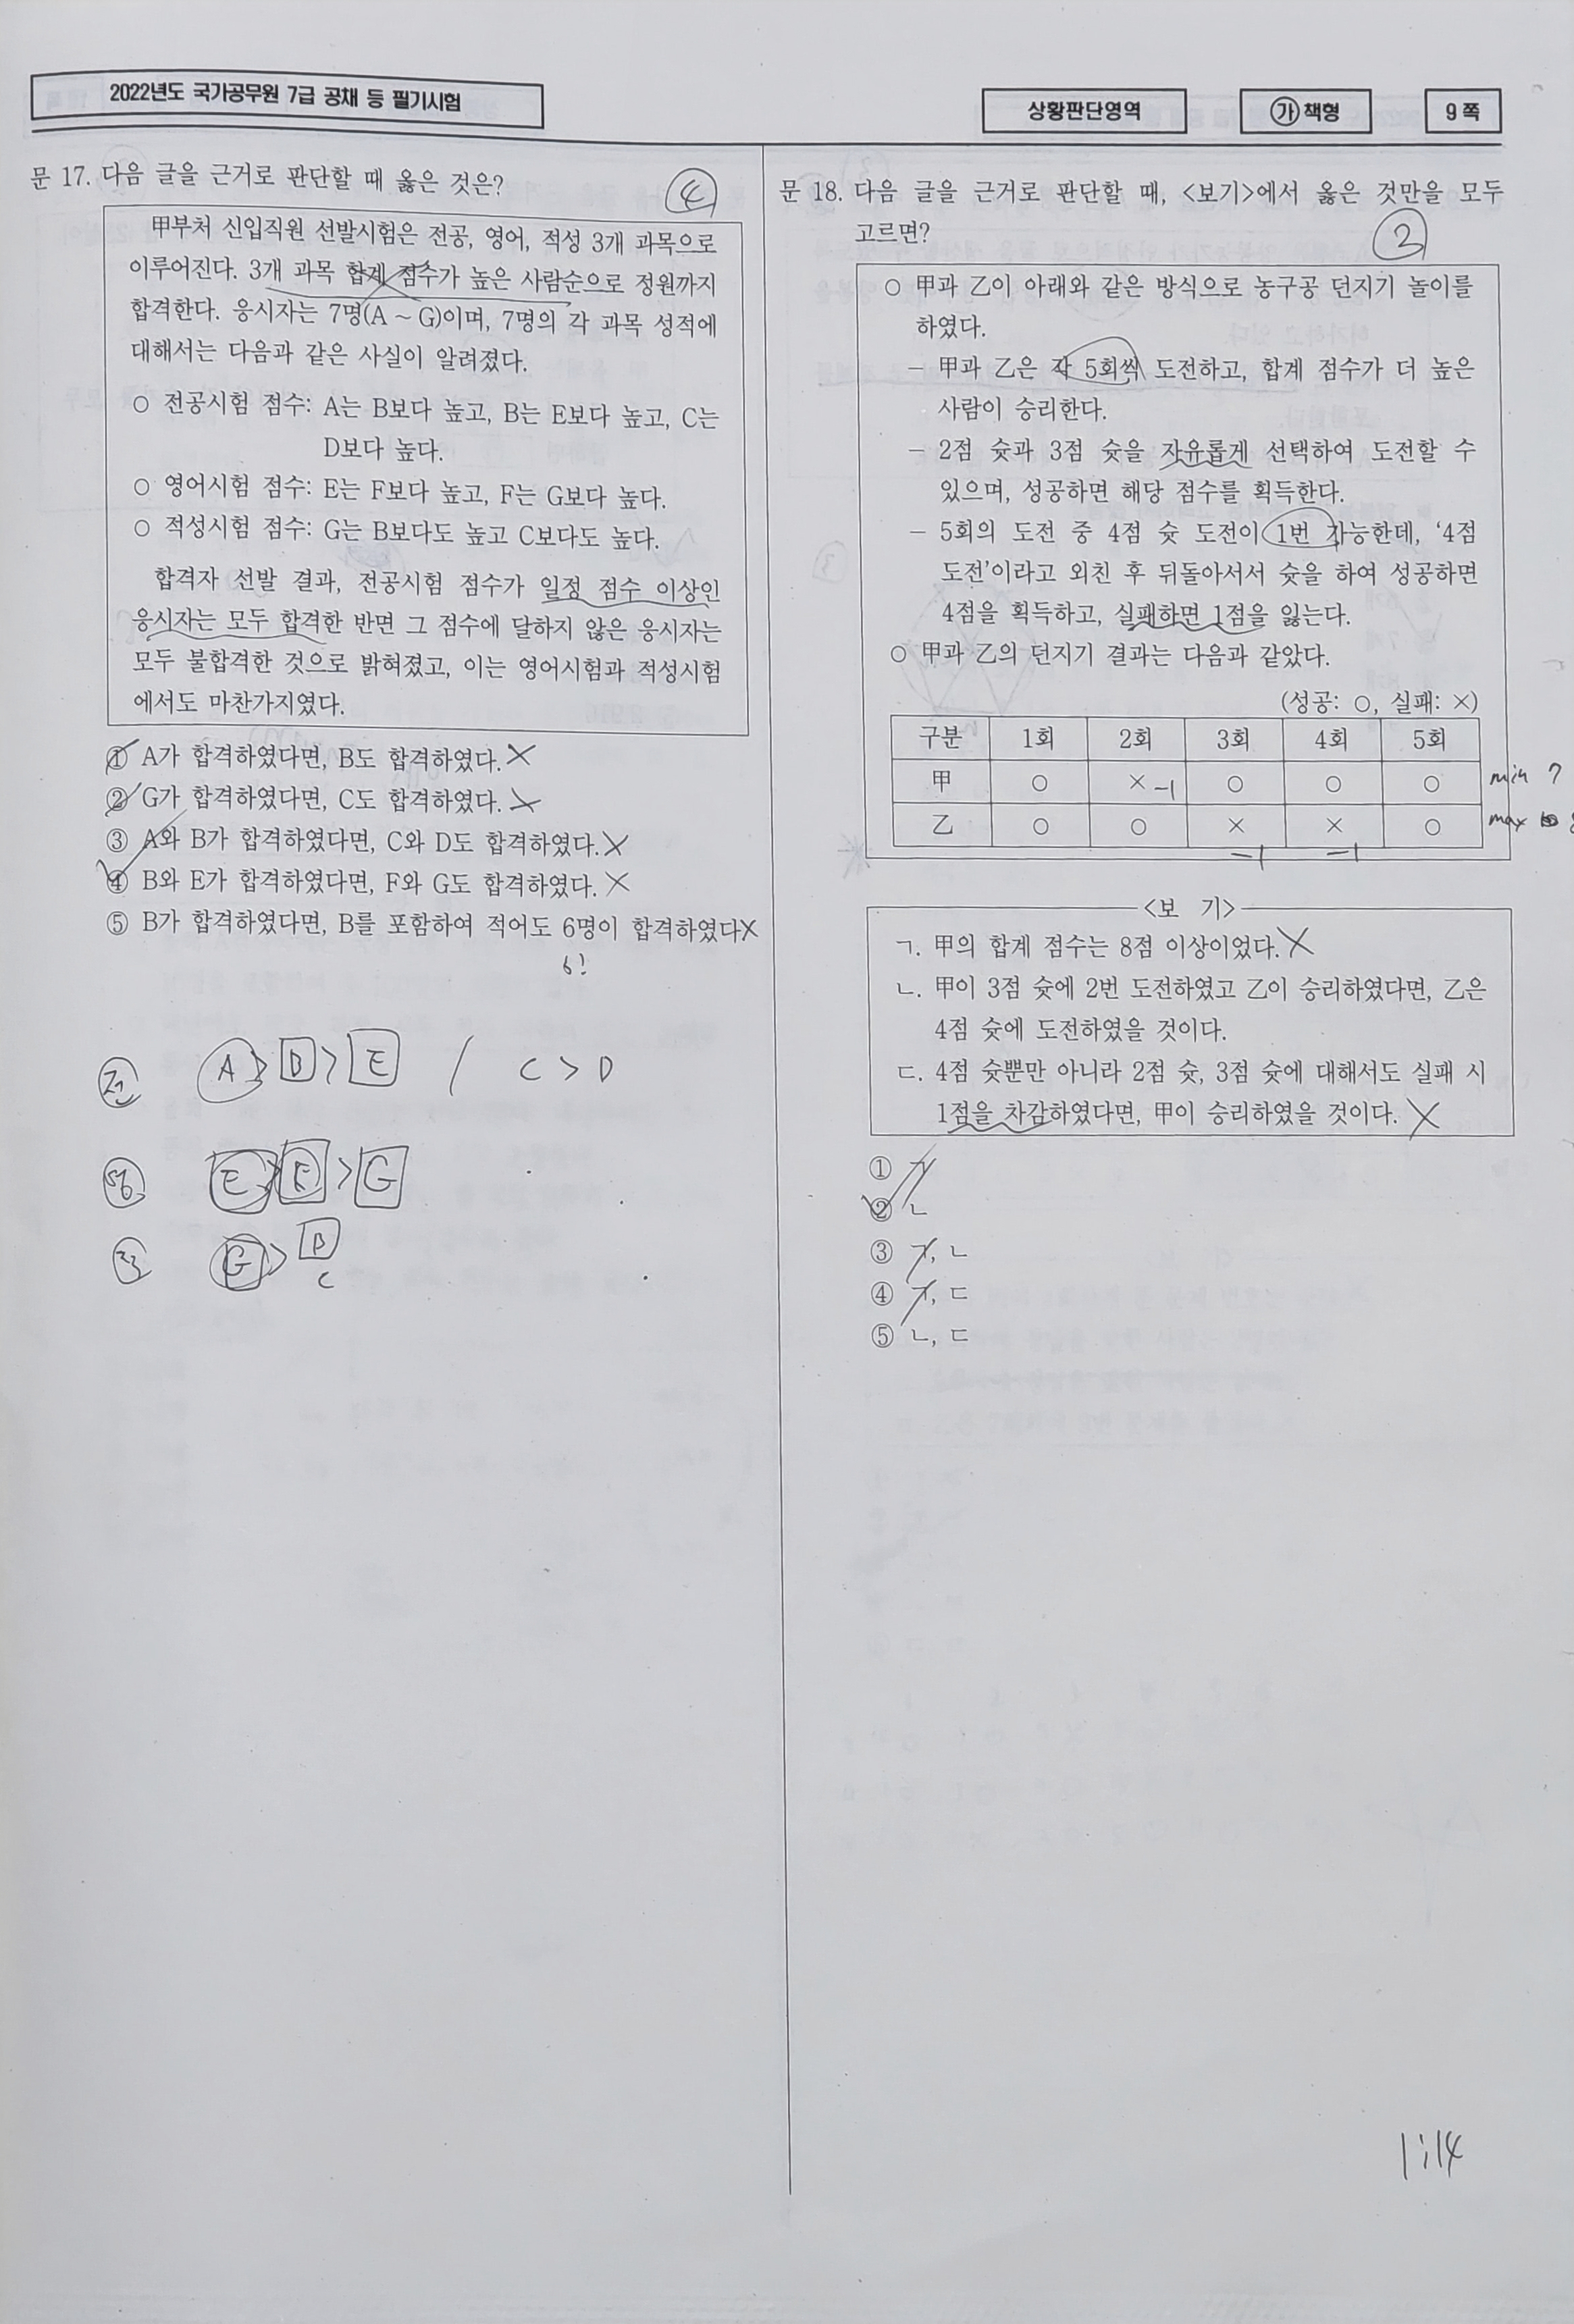 2022년도 국가공무원 7급 공채 등 필기시험
상황판단영역
㉮ 책형
9 쪽
문 17. 다음 글을 근거로 판단할 때 옳은 것은?
④
甲부처 신입직원 선발시험은 전공, 영어, 적성 3개 과목으로
이루어진다. 3개 과목 합계 점수가 높은 사람순으로 정원까지
합격한다. 응시자는 7명(A ~ G)이며, 7명의 각 과목 성적에
대해서는 다음과 같은 사실이 알려졌다.
○ 전공시험 점수: A는 B보다 높고, B는 E보다 높고, C는
D보다 높다.
○ 영어시험 점수: E는 F보다 높고, F는 G보다 높다.
○ 적성시험 점수: G는 B보다도 높고 C보다도 높다.
합격자 선발 결과, 전공시험 점수가 일정 점수 이상인
응시자는 모두 합격한 반면 그 점수에 달하지 않은 응시자는
모두 불합격한 것으로 밝혀졌고, 이는 영어시험과 적성시험
에서도 마찬가지였다.
① A가 합격하였다면, B도 합격하였다. X
② G가 합격하였다면, C도 합격하였다. X
③ A와 B가 합격하였다면, C와 D도 합격하였다. X
④ B와 E가 합격하였다면, F와 G도 합격하였다. X
⑤ B가 합격하였다면, B를 포함하여 적어도 6명이 합격하였다 X
6!
전 A > B > E / C > D
영 E > F > G
적 G > B
C
문 18. 다음 글을 근거로 판단할 때, <보기>에서 옳은 것만을 모두
고르면?
②
○ 甲과 乙이 아래와 같은 방식으로 농구공 던지기 놀이를
하였다.
- 甲과 乙은 각 5회씩 도전하고, 합계 점수가 더 높은
사람이 승리한다.
- 2점 슛과 3점 슛을 자유롭게 선택하여 도전할 수
있으며, 성공하면 해당 점수를 획득한다.
- 5회의 도전 중 4점 슛 도전이 1번 가능한데, ‘4점
도전’이라고 외친 후 뒤돌아서서 슛을 하여 성공하면
4점을 획득하고, 실패하면 1점을 잃는다.
○ 甲과 乙의 던지기 결과는 다음과 같았다.
(성공: ○, 실패: ×)
구분 1회 2회 3회 4회 5회
甲 ○ × -1 ○ ○ ○ min 7
乙 ○ ○ × × ○ max
-1 -1
<보 기>
ㄱ. 甲의 합계 점수는 8점 이상이었다. X
ㄴ. 甲이 3점 슛에 2번 도전하였고 乙이 승리하였다면, 乙은
4점 슛에 도전하였을 것이다.
ㄷ. 4점 슛뿐만 아니라 2점 슛, 3점 슛에 대해서도 실패 시
1점을 차감하였다면, 甲이 승리하였을 것이다. X
① ㄱ
② ㄴ
③ ㄱ, ㄴ
④ ㄱ, ㄷ
⑤ ㄴ, ㄷ
1:14